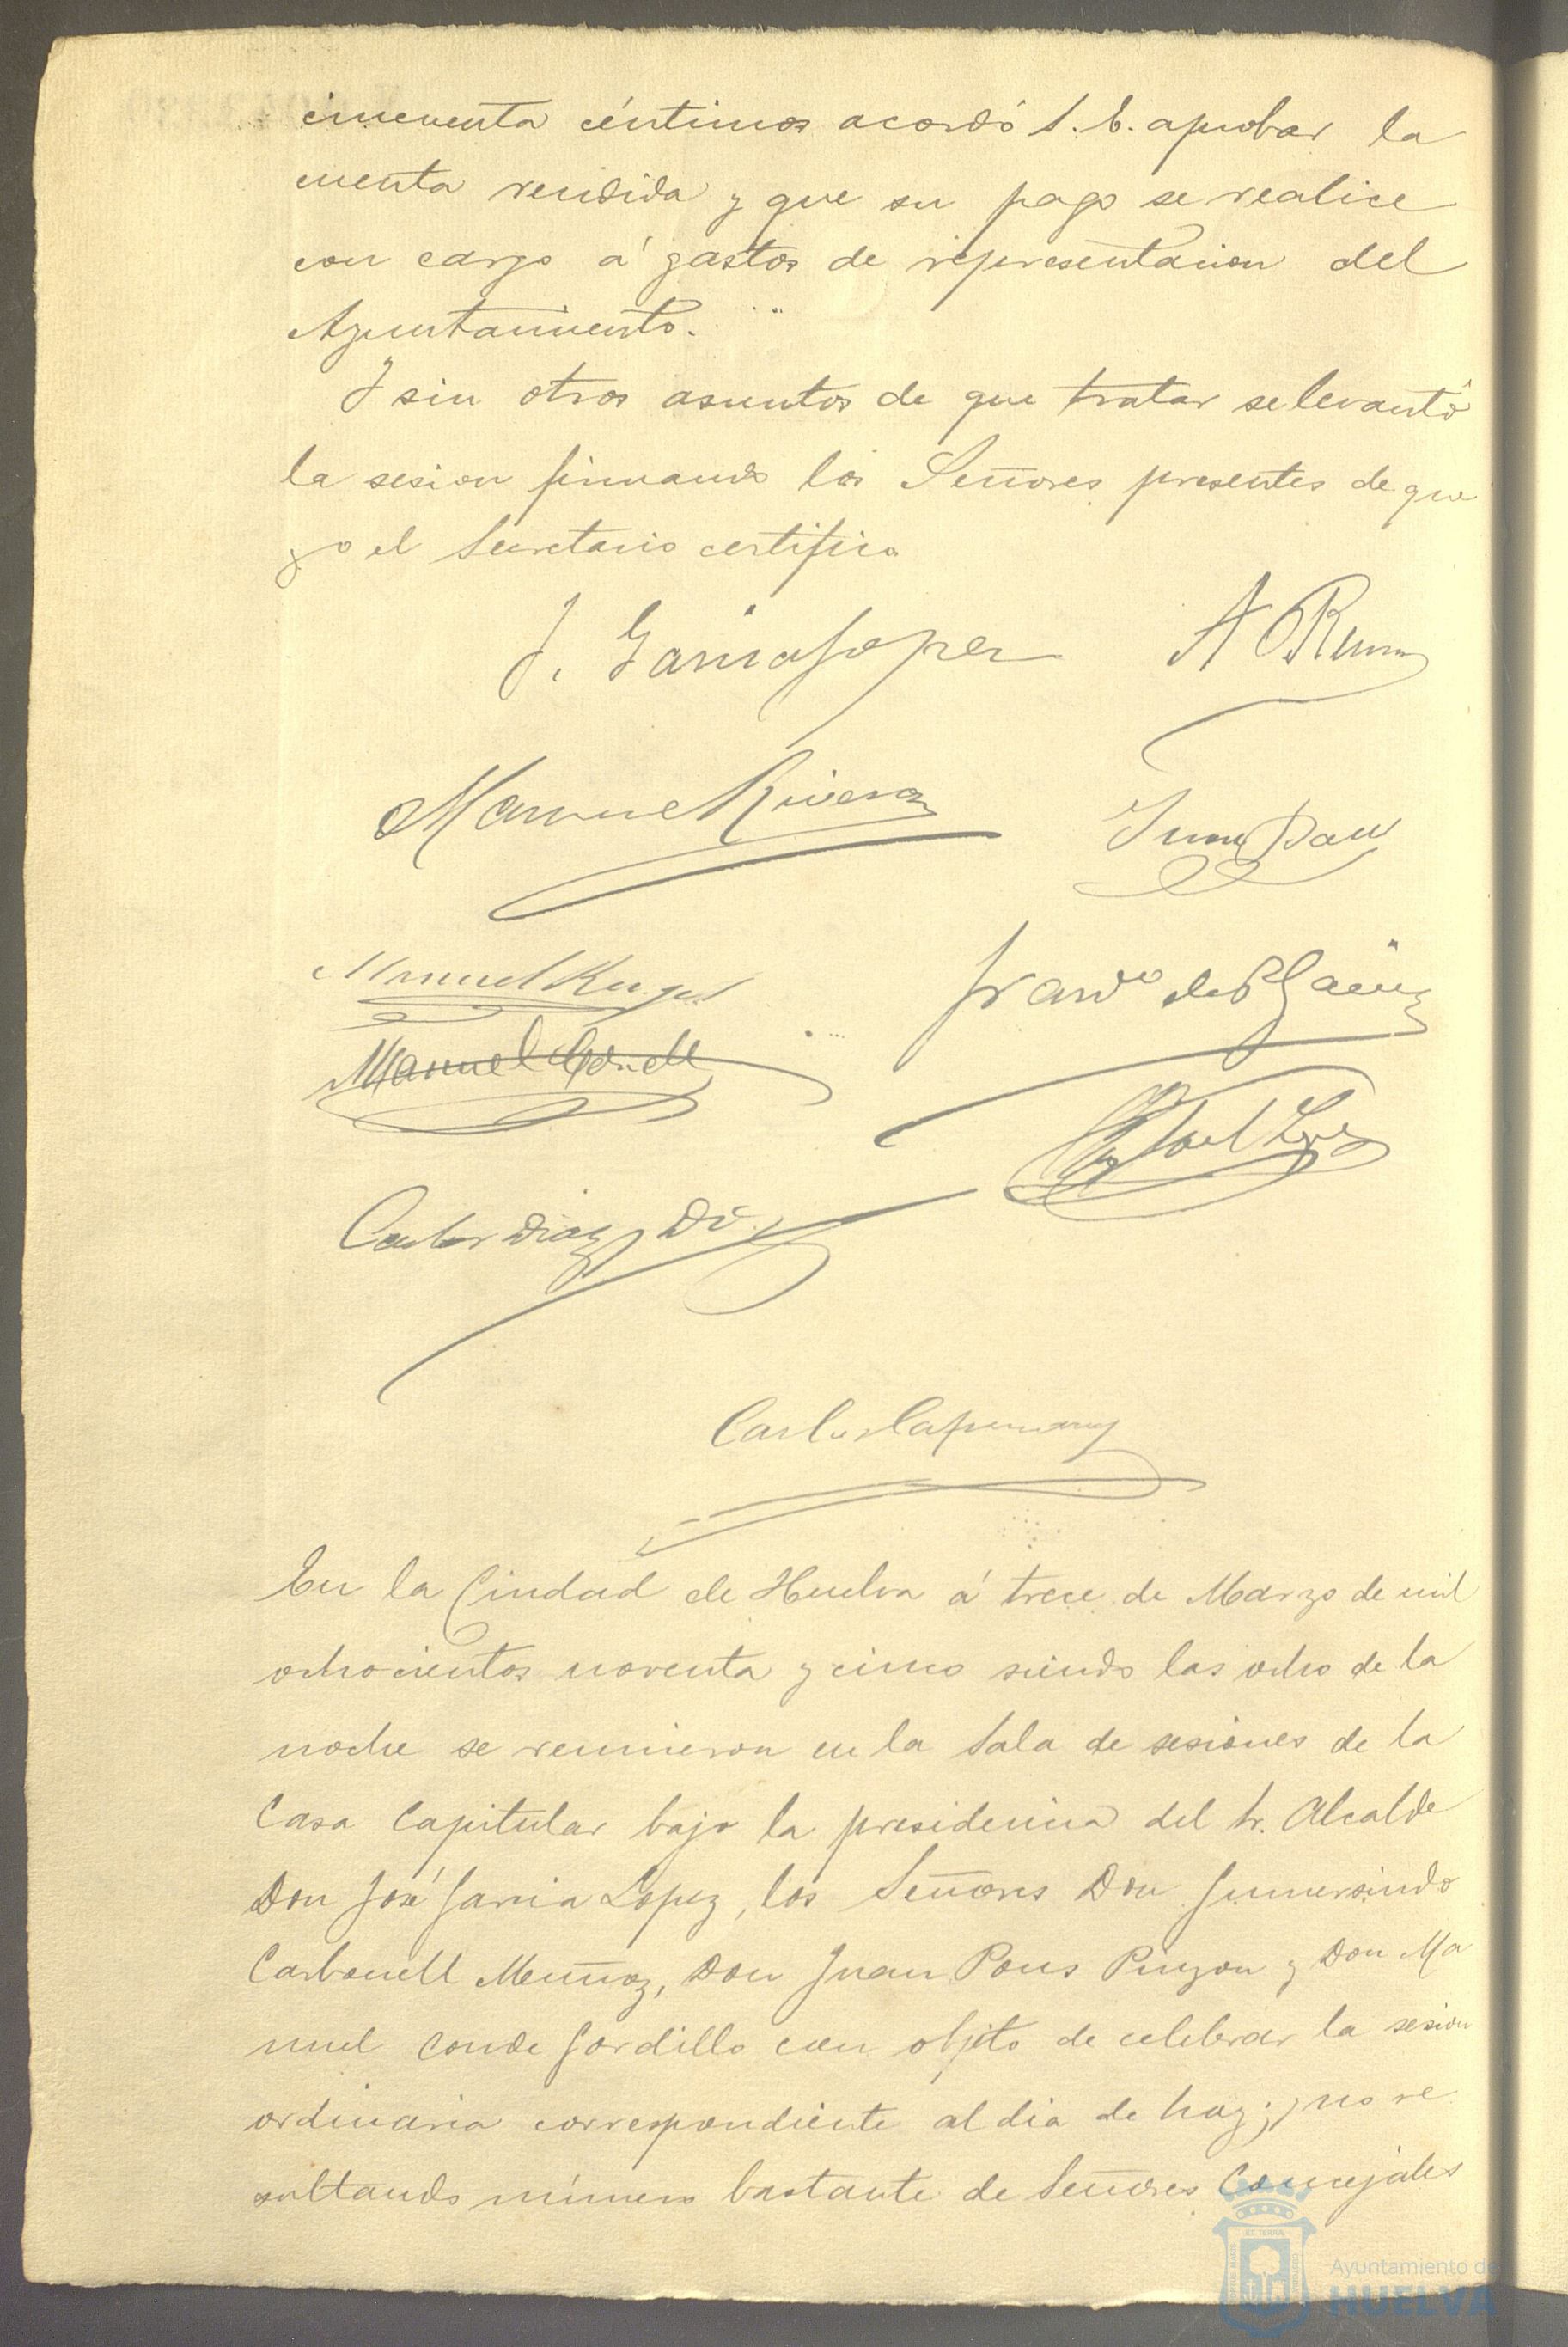 cincuenta céntimos acordó S. E. aprobar la
cuenta rendida y que su pago se realice
con cargo á gastos de representacion del
Ayuntamiento.
Y sin otros asuntos de que tratar se levantó
la sesion firmando los Señores presentes de que
yo el Secretario certifico
J. Garcia Lopez
A
Manuel Rivera
Juan Pons
Manuel
Manuel Conde
Rafael
Carlos Diaz
Carlos
En la Ciudad de Huelva á trece de Marzo de mil
ochocientos noventa y cinco siendo las ocho de la
noche se reunieron en la Sala de sesiones de la
Casa Capitular bajo la presidencia del Sr. Alcalde
Don José Garcia Lopez, los Señores Don Gumersindo
Carbonell Muñoz, Don Juan Pons Pinzon y Don Ma
nuel Conde Gordillo con objeto de celebrar la sesion
ordinaria correspondiente al dia de hoy; y no re
sultando número bastante de Señores Concejales
Ayuntamiento de
HUELVA